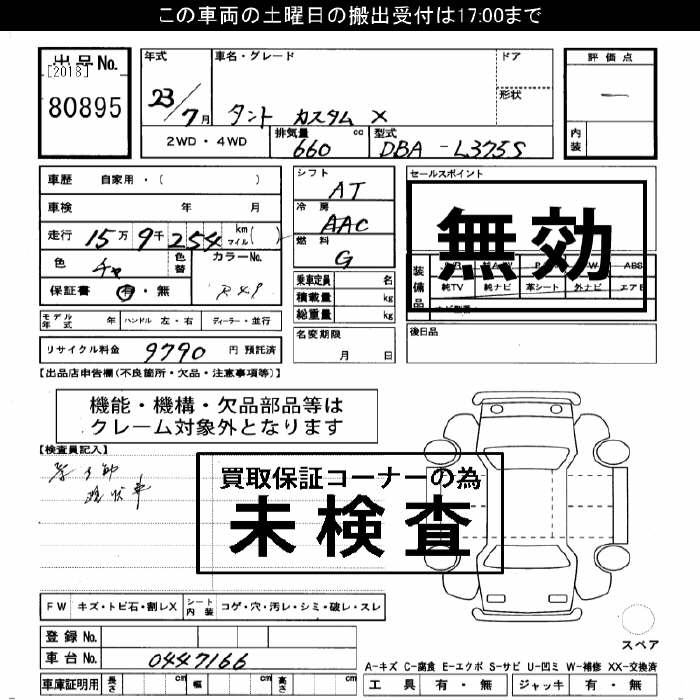 この車両の土曜日の搬出受付は17:00まで
出品No.
[2018]
80895
年式
23/7月
車名・グレード
タント カスタム X
ドア
形状
評価点
—
内装
2WD・4WD
排気量 cc
660
型式
DBA-L375S
車歴 自家用・( )
車検 年 月
走行 15万9千254 km マイル( )
色 チャ 色替
カラーNo.
R49
保証書 有・無
モデル年式 年 ハンドル 左・右 ディーラー・並行
リサイクル料金 9790 円 預託済
シフト
AT
冷房
AAC
燃料
G
乗車定員 名
積載量 kg
総重量 kg
名変期限
月 日
セールスポイント
無効
装備品
ABS
純TV 純ナビ 革シート 外ナビ エアB
後日品
【出品店申告欄(不良箇所・欠品・注意事項等)】
機能・機構・欠品部品等は
クレーム対象外となります
【検査員記入】
現状車
買取保証コーナーの為
未検査
FW キズ・トビ石・割レX シート内装 コゲ・穴・汚レ・シミ・破レ・スレ
登録No.
車台No. 0447166
車庫証明用 長さ cm 幅 cm 高さ cm
スペア
A-キズ C-腐食 E-エクボ S-サビ U-凹ミ W-補修 XX-交換済
工具 有・無 ジャッキ 有・無